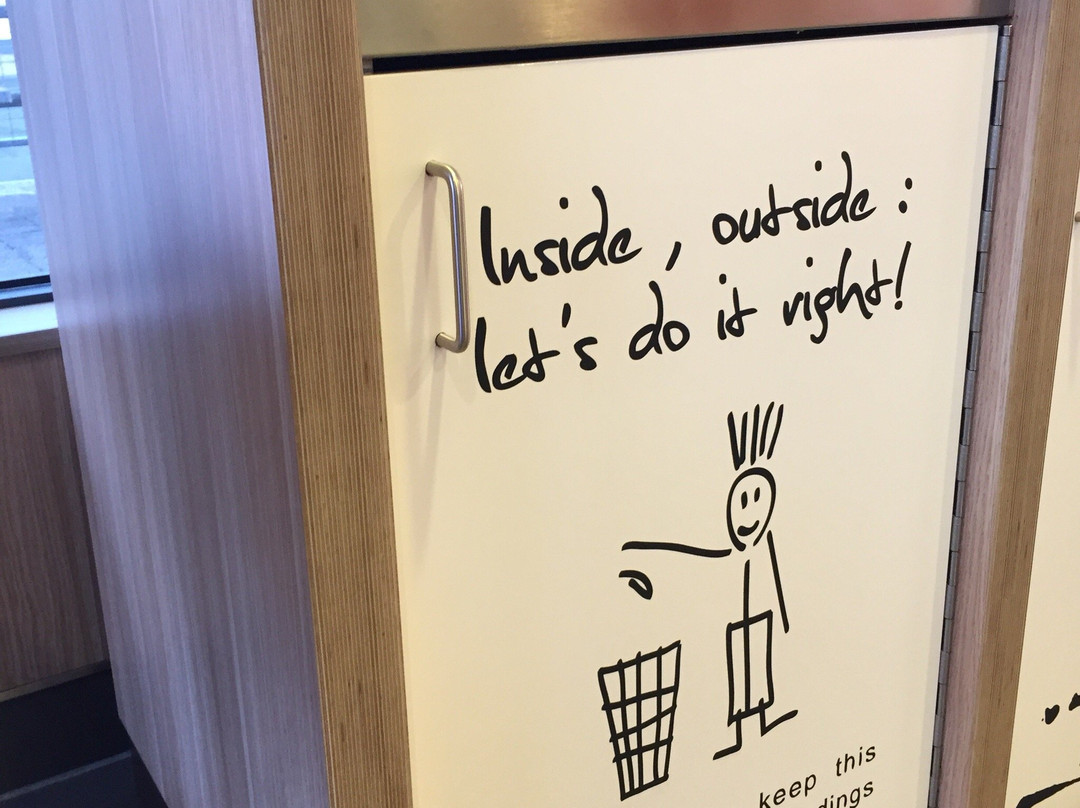 Inside, outside:
let's do it right!
keep this